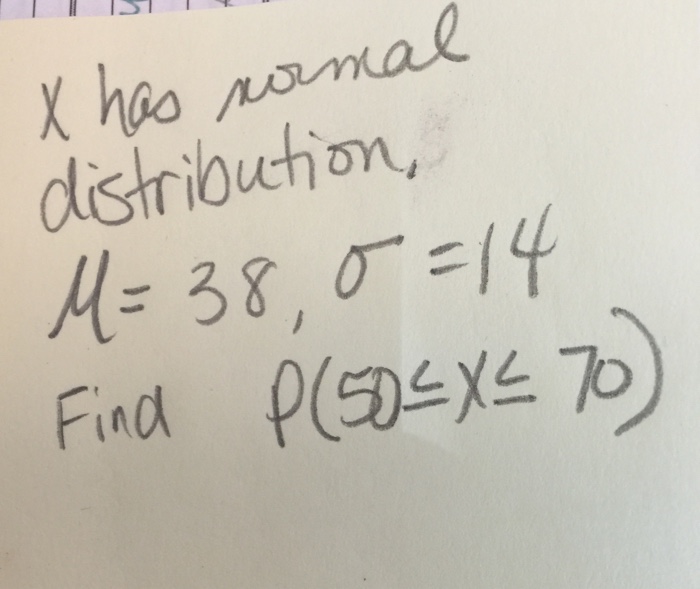 X has normal
distribution.
μ = 38, σ = 14
Find P(50 ≤ X ≤ 70)